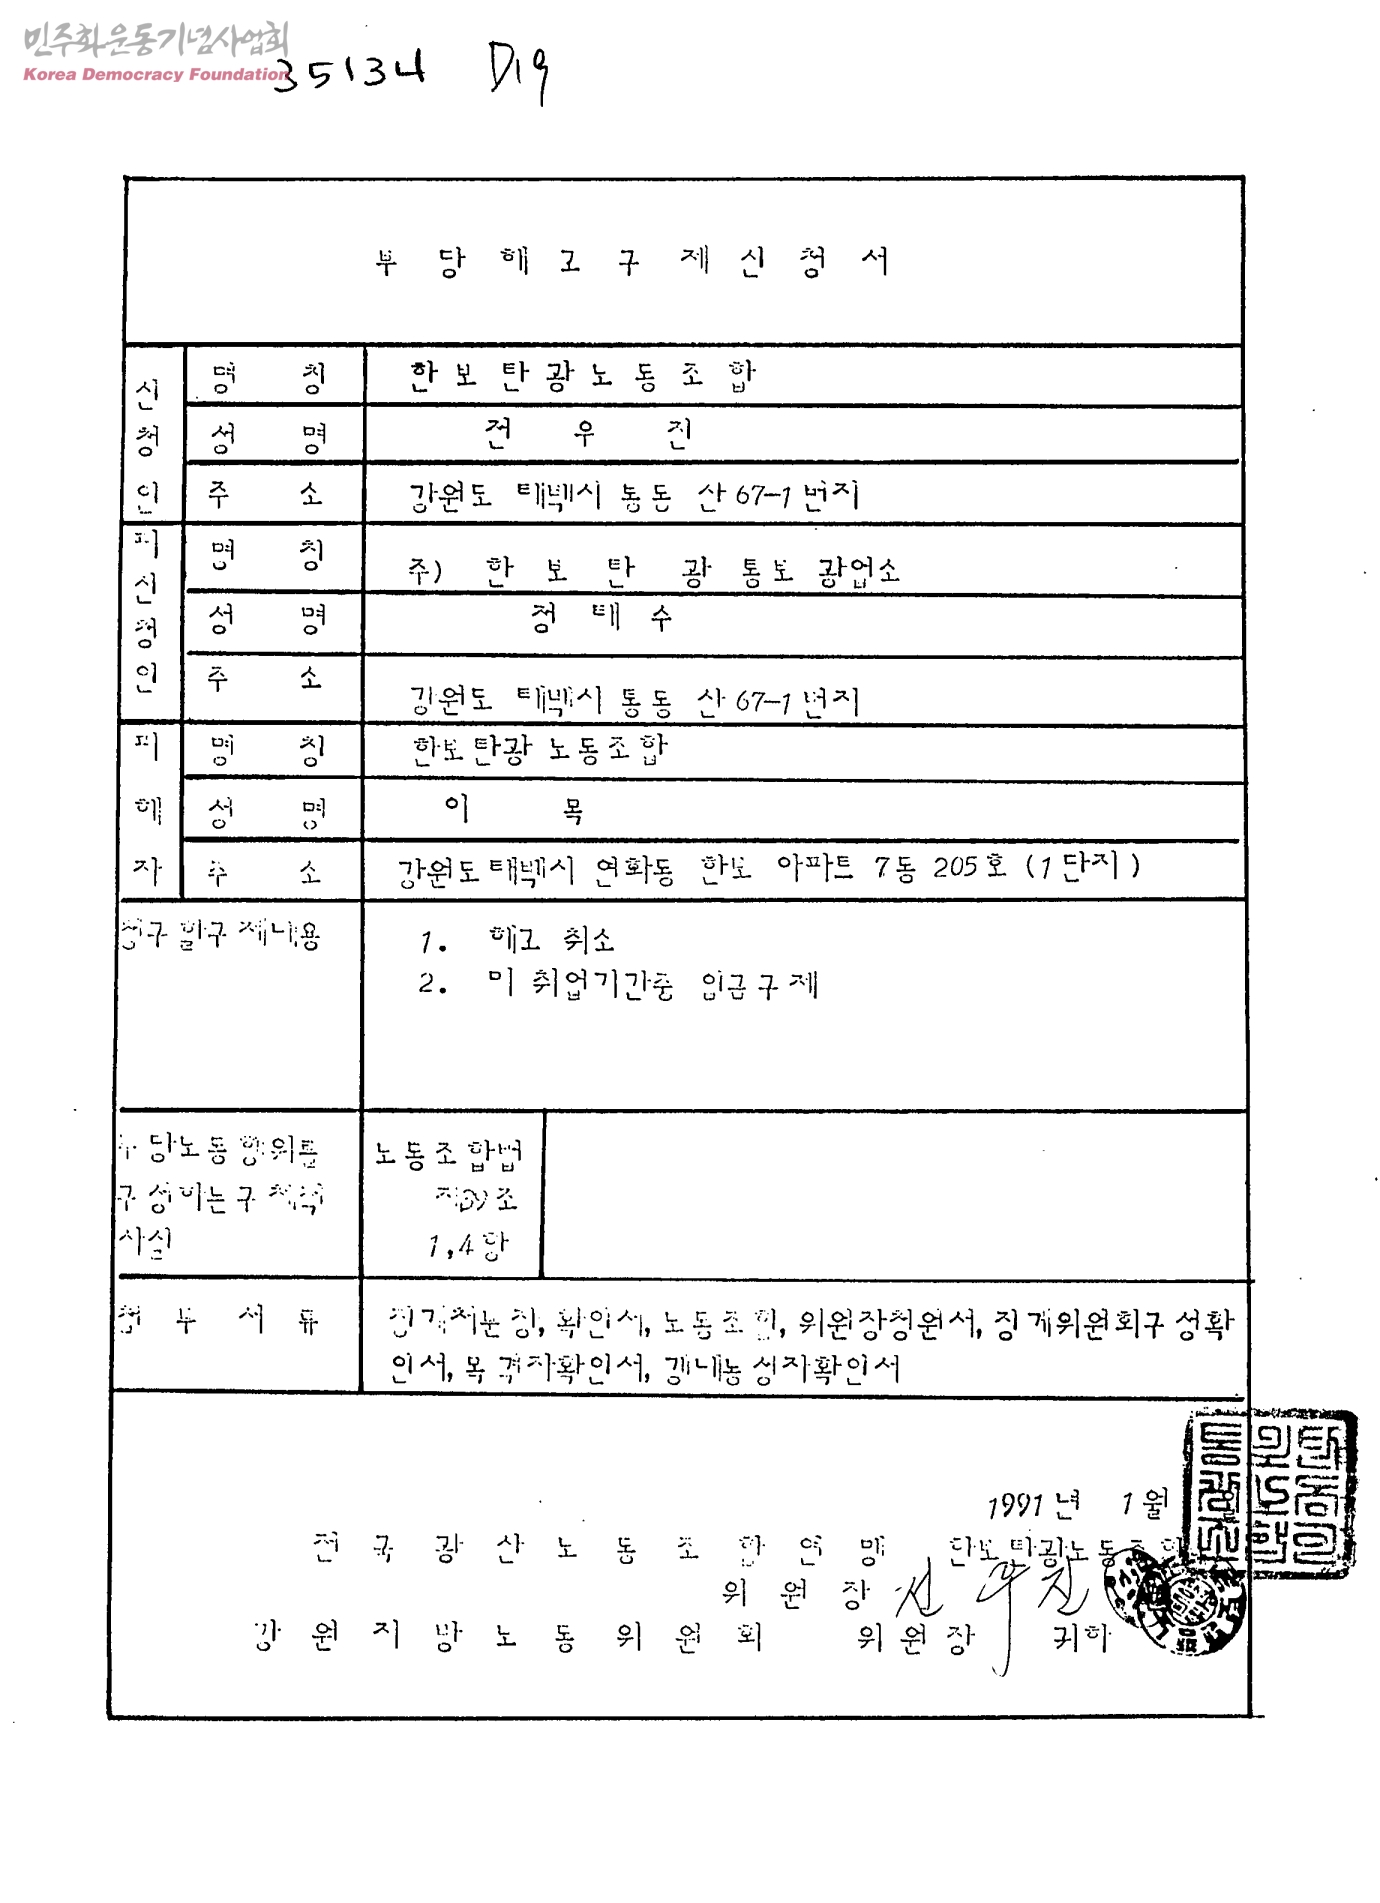 민주화운동기념사업회
Korea Democracy Foundation
35134 D19
부당해고구제신청서
신청인
명칭 한보탄광노동조합
성명 전우진
주소 강원도 태백시 통동 산 67-1 번지
피신청인
명칭 주) 한보탄광 통보광업소
성명 정태수
주소 강원도 태백시 통동 산 67-1 번지
피해자
명칭 한보탄광 노동조합
성명 이목
주소 강원도 태백시 연화동 한보 아파트 7동 205호 (1단지)
청구할구제내용
1. 해고 취소
2. 미 취업기간중 임금구제
부당노동행위를
구성하는구체적
사실
노동조합법
제39조
1,4항
첨부서류
징계처분장, 확인서, 노동조합, 위원장청원서, 징계위원회구성확
인서, 목격자확인서, 갱내농성자확인서
1991년 1월
전국광산노동조합연맹 한보탄광노동조합
위원장 전우진
강원지방노동위원회 위원장 귀하